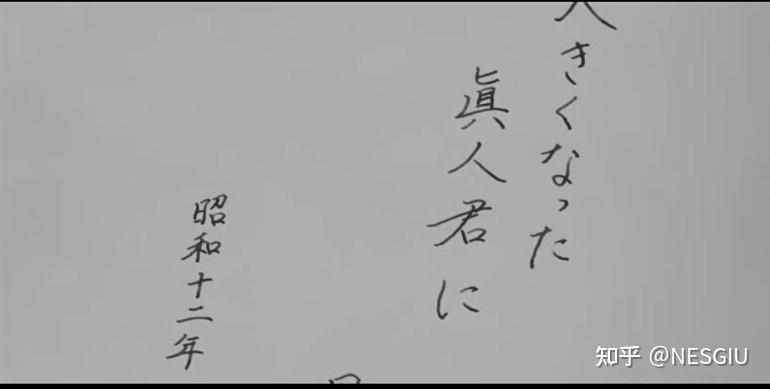 大きくなった
眞人君に
昭和十二年
知乎 @NESGIU